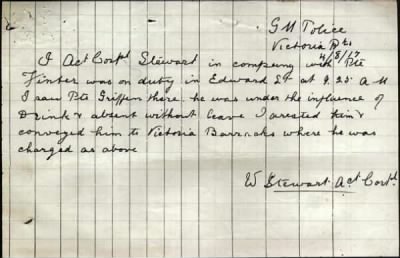 G M Police
Victoria Bks
4/8/17
I Act Corpl Stewart in company with Pte
was on duty in Edward St at 9.25 a M
I saw Pte Griffin there, he was under the influence of
Drink & absent without leave I arrested him &
conveyed him to Victoria Barracks where he was
charged as above
W Stewart Act Corpl